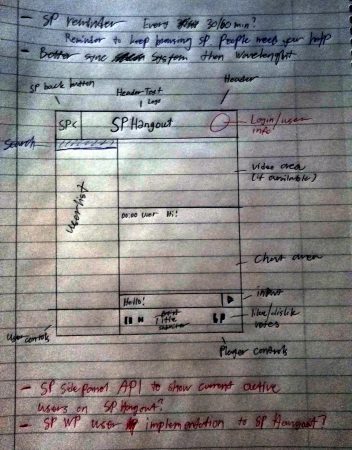 - SP reminder Every 30/60 min?
Reminder to keep browsing SP People need your help
- Better sync system then wavelenght
SP back button
Header Text
Logo
Header
SP<
SP Hangout
Login/user
info
Search
userlist
video area
(if available)
00:00 user Hi!
Chat area
Hello!
input
Title
like/dislike
votes
User controls
Player controls
- SP Sidepanel API to show current active
users on SP Hangout?
- SP WP user implementation to SP Hangout?